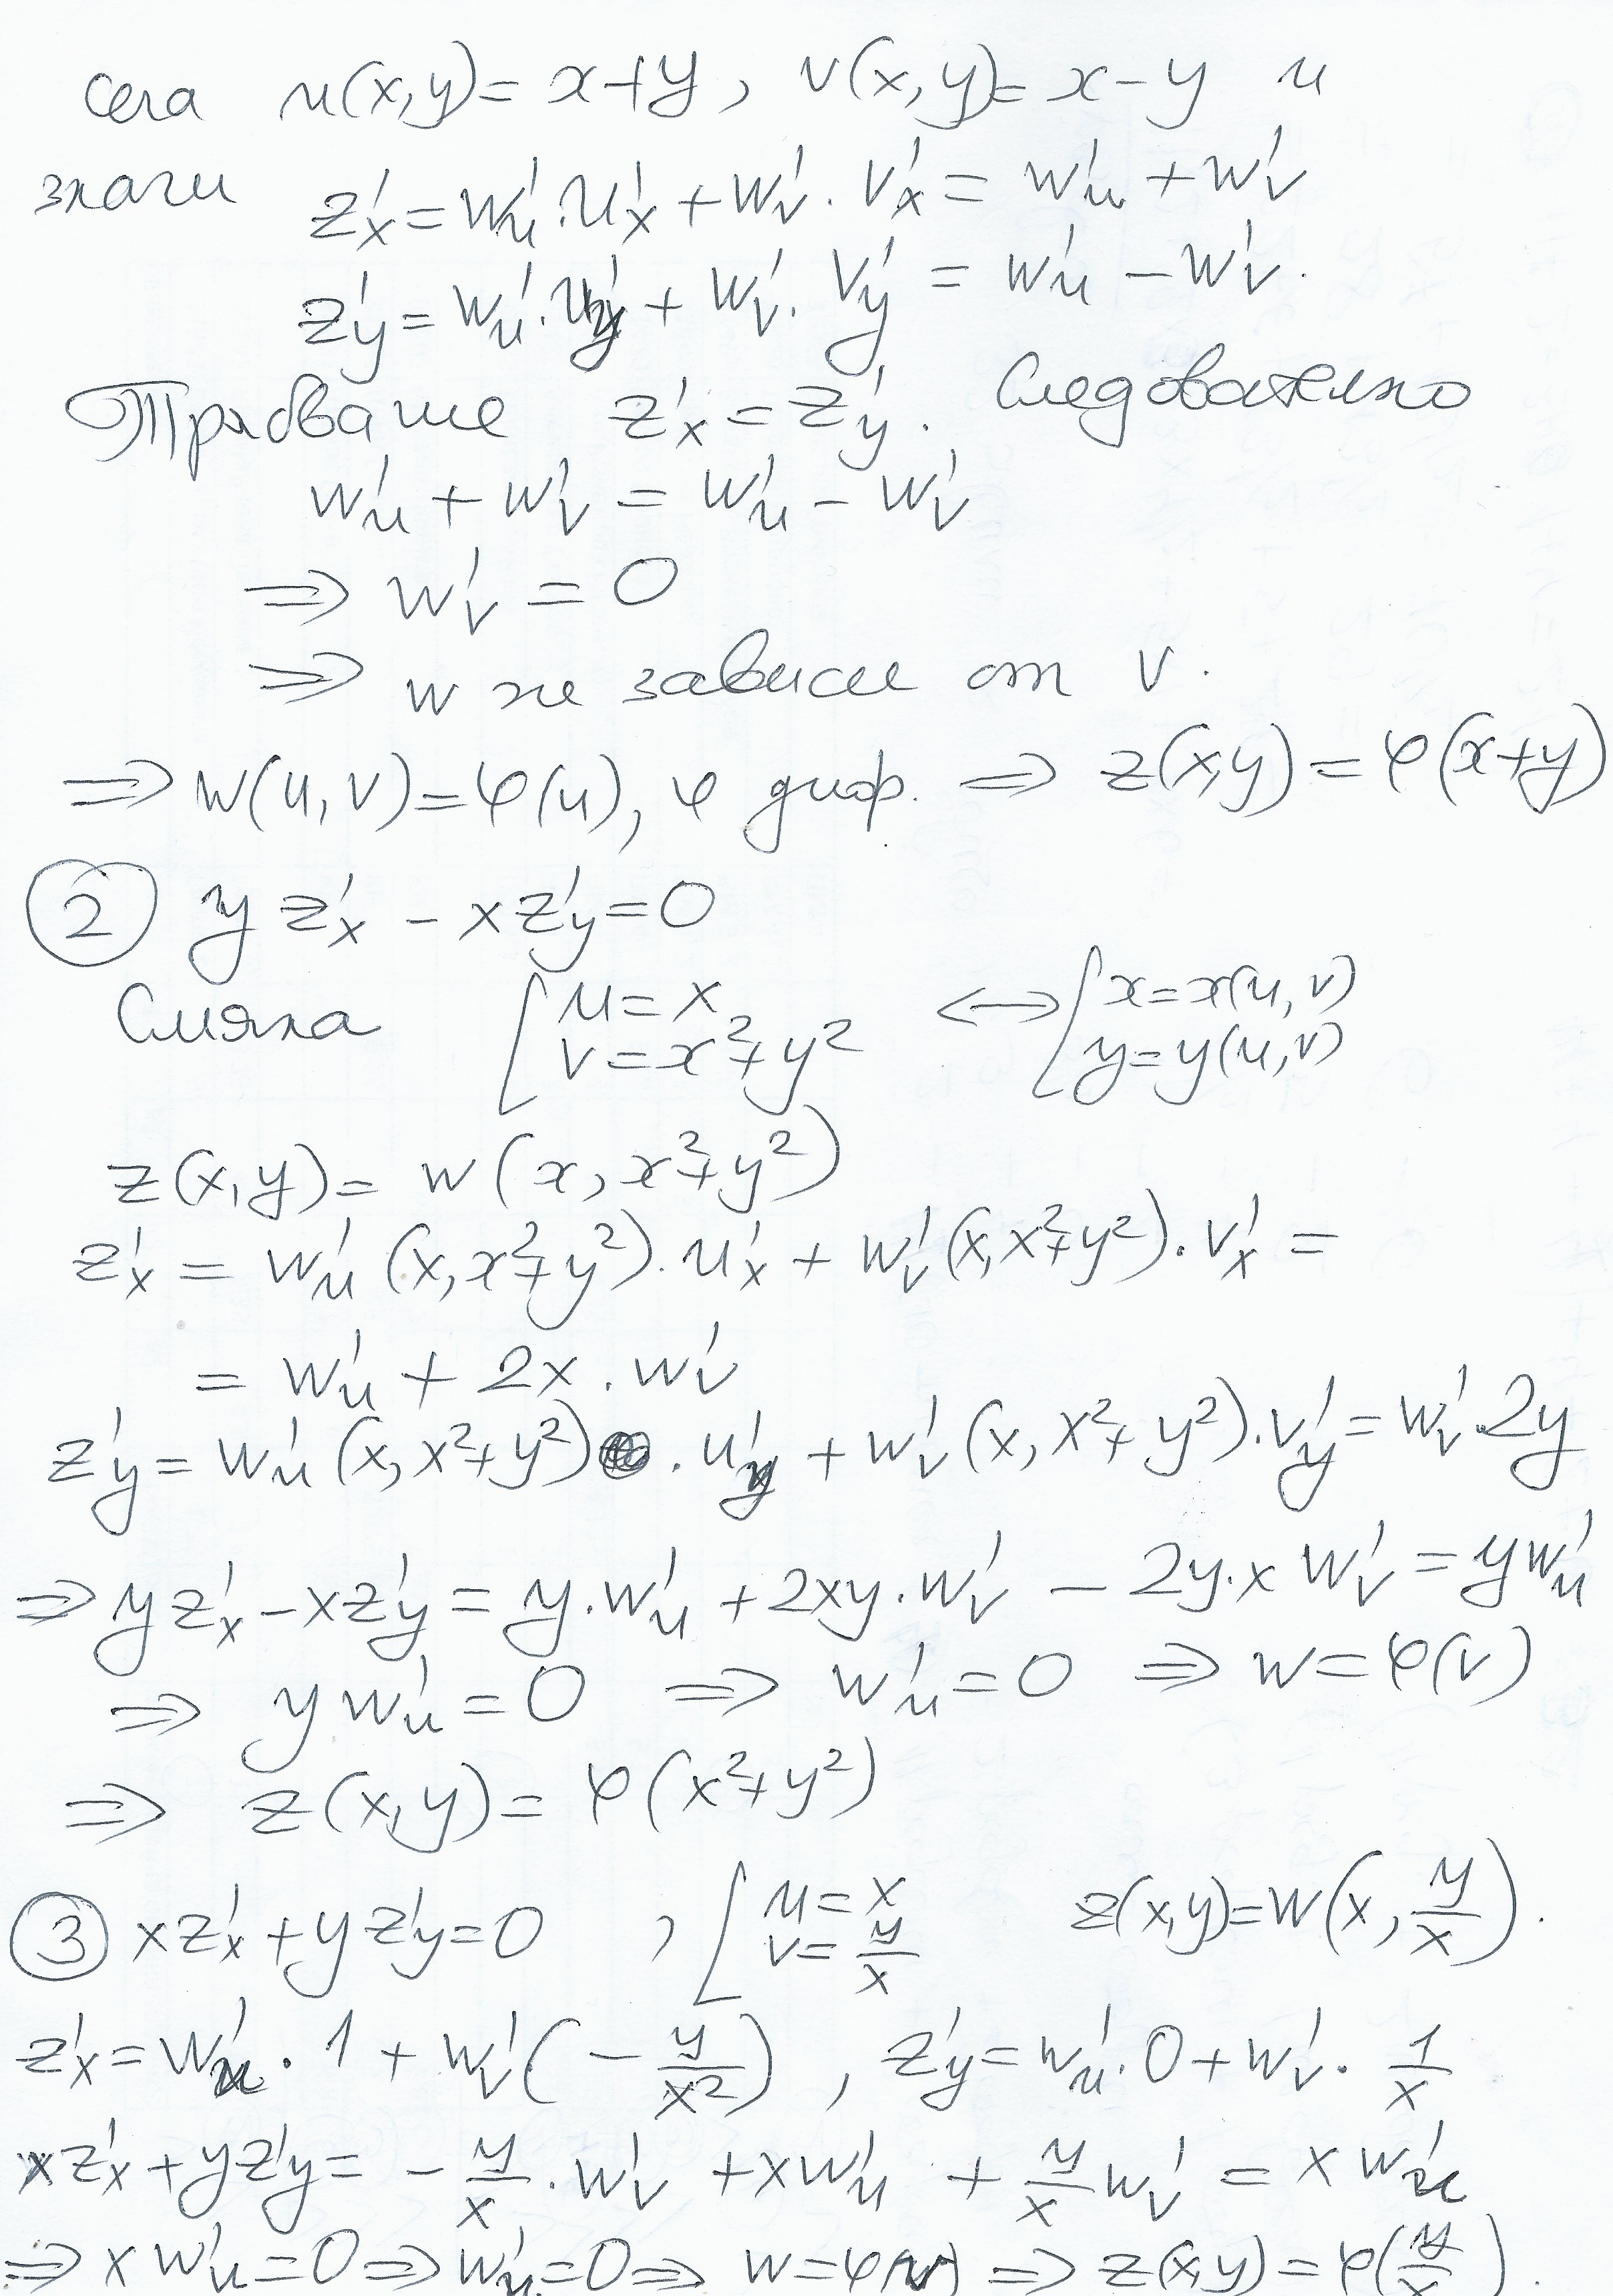 сега u(x,y)= x+y, v(x,y)= x-y и
значи z'x = w'u . u'x + w'v . v'x = w'u + w'v
z'y = w'u . u'y + w'v . v'y = w'u - w'v.
Трябваше z'x = z'y. Следователно
w'u + w'v = w'u - w'v
⇒ w'v = 0
⇒ w не зависи от v.
⇒ w(u,v)=φ(u), φ диф. ⇒ z(x,y) = φ(x+y)
② y z'x - x z'y = 0
Смяна { u = x v = x²+y² ↔ { x = x(u,v) y = y(u,v)
z(x,y) = w(x, x²+y²)
z'x = w'u (x, x²+y²). u'x + w'v (x, x²+y²). v'x =
= w'u + 2x . w'v
z'y = w'u (x, x²+y²) . u'y + w'v (x, x²+y²). v'y = w'v . 2y
⇒ y z'x - x z'y = y.w'u + 2xy.w'v - 2y.x w'v = y w'u
⇒ y w'u = 0 ⇒ w'u = 0 ⇒ w = φ(v)
⇒ z(x,y) = φ(x²+y²)
③ x z'x + y z'y = 0 , { u = x v = y/x z(x,y) = w(x, y/x).
z'x = w'u . 1 + w'v (- y/x²) , z'y = w'u . 0 + w'v . 1/x
x z'x + y z'y = - y/x . w'v + x w'u + y/x w'v = x w'u
⇒ x w'u = 0 ⇒ w'u = 0 ⇒ w = φ(v) ⇒ z(x,y) = φ(y/x).